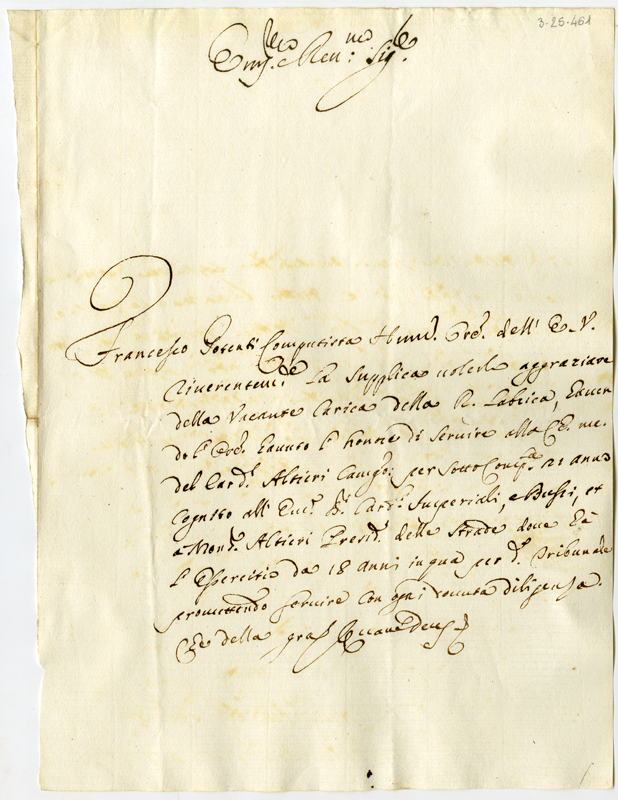 3-25-461
Em.mo e Rev.mo Sig.re
Francesco Potenti Computista Hum. Ore. dell' E. V.
riverentem.te La Supplica volerlo aggraziare
della Vacante Carica della R. Fabrica, haven
do l' Ore. hauuto l' honore di seruire alla Ch. me.
del Card. Altieri Camg. per sotto Comp.ta 21 anno
Cognito all' Em. SS. Card. Imperiali, e Bussi, et
a Mons. Altieri Presid. delle strade doue hà
l' Essercitio da 18 anni in qua per d.o Tribunale
promettendo servire con ogni douuta diligenza.
Che della graz. Quam Deus